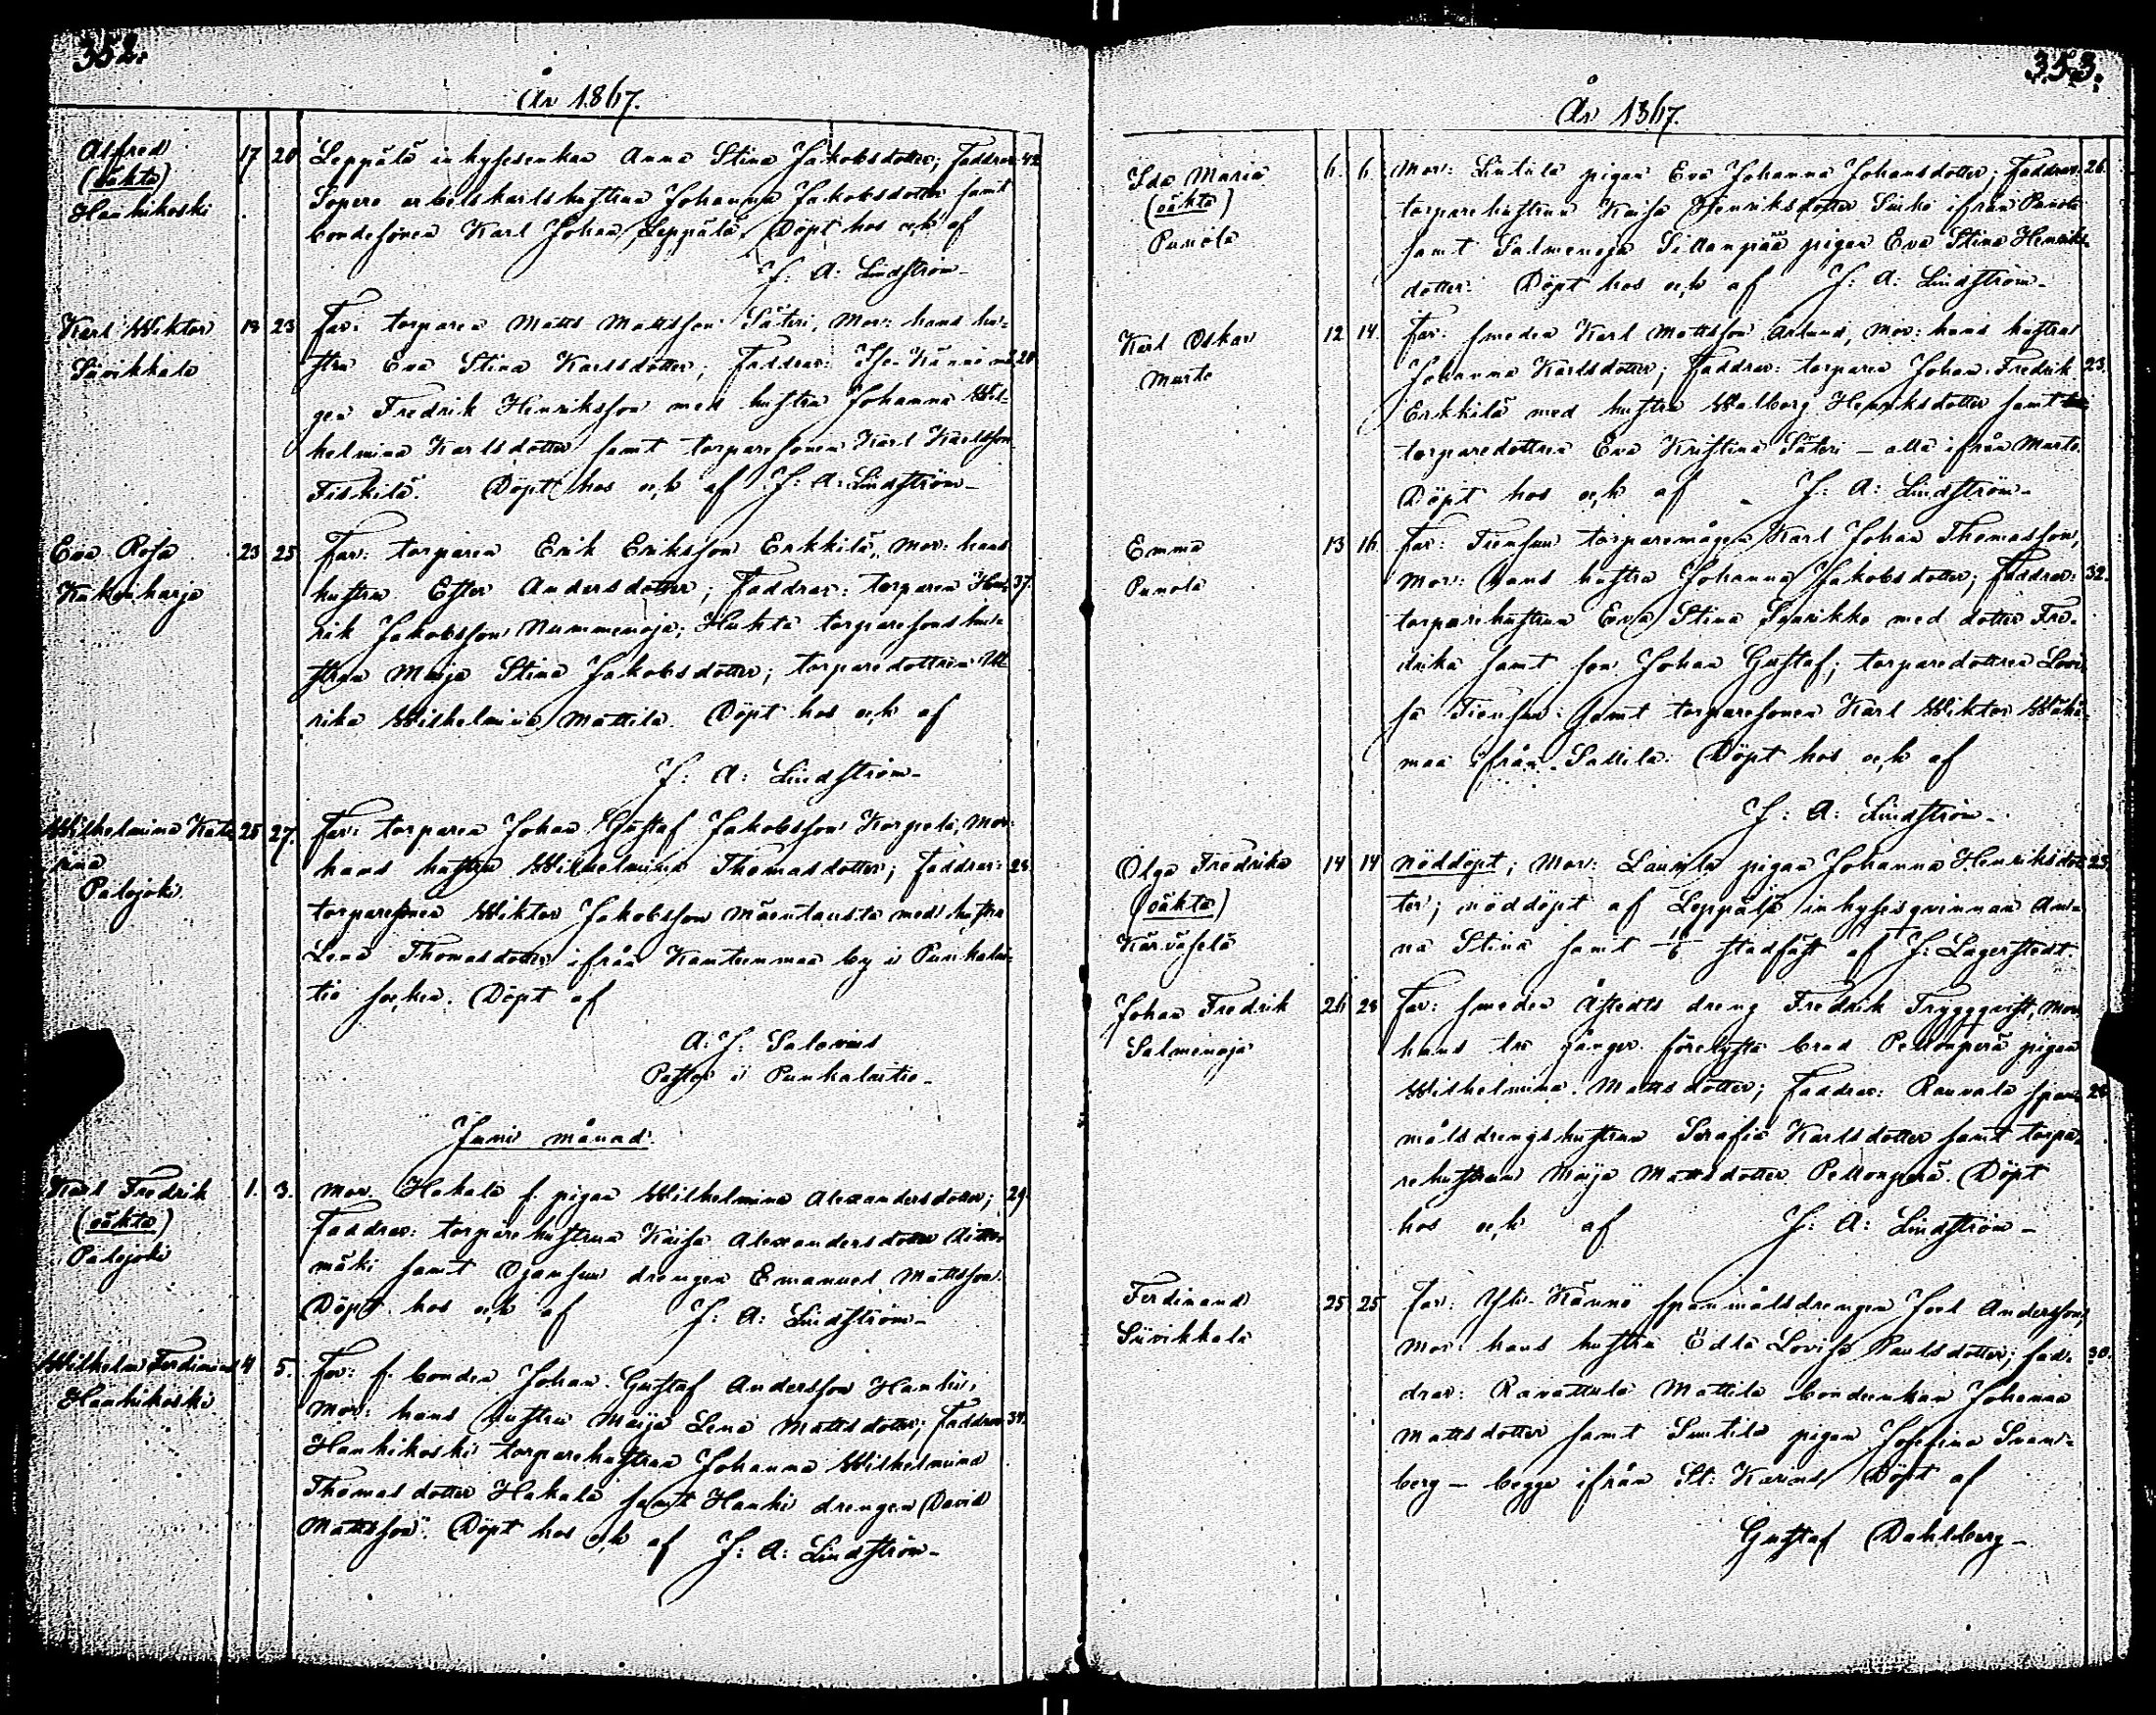 352.
År 1867.
Alfred 17 20 Leppälä inhysesenkan Anna Stina Jakobsdotter; Faddrar: 42.
(oäkta) Sopero arbetskarlshustrun Johanna Jakobsdotter samt
Hanhikoski bondesonen Karl Johan Leppälä. Döpt hos och af
J: A: Lindström-
Karl Wiktor 19 23 Far: torparen Matts Mattsson Säteri, Mor: hans hu-
Suvikkala stru Eva Stina Karlsdotter; Faddrar: Kännö må- 28.
gen Fredrik Henriksson med hustru Johanna Wil-
helmina Karlsdotter samt torparesonen Karl Karlsson
Fiskilä. Döpt hos och af J: A: Lindström-
Eva Rosa 23 25 Far: torparen Erik Eriksson Erkkilä, Mor: hans
Kukonharja hustru Ester Andersdotter; Faddrar: torparen Hen- 37.
rik Jakobsson Nummenoja; Huhta torparesonshu-
strun Maja Stina Jakobsdotter; torparedottren Ul-
rika Wilhelmina Mattila. Döpt hos och af
J: A: Lindström-
Wilhelmina Kata- 25 27. Far: torparen Johan Gustaf Jakobsson Korpela, Mor:
rina hans hustru Wilhelmina Thomasdotter; Faddrar: 28.
Palojoki torparesonen Wiktor Jakobsson Mäentausta med hustru
Lena Thomasdotter ifrån Kanteenmaa by i Punkalai-
tio socken. Döpt af
A: J: Salovius
Pastor i Punkalaitio-
Juni månad.
Karl Fredrik 1. 3. Mor: Hakala f. pigan Wilhelmina Alexandersdotter; 29.
(oäkta) Faddrar: torparehustrun Kaisa Alexandersdotter
Palojoki mäki samt Ojansuu drengen Emanuel Mattsson.
Döpt hos och af J: A: Lindström-
Wilhelm Ferdinand 4 5. Far: f. bonden Johan Gustaf Andersson Hanhi,
Hanhikoski Mor: hans hustru Maija Lena Mattsdotter; Faddrar: 34.
Hanhikoski torparehustrun Johanna Wilhelmina
Thomasdotter Hakala samt Hanhi drengen David
Mattsson. Döpt hos och af J: A: Lindström-
353.
År 1867.
Ida Maria 6. 6. Mor: Lintula pigan Eva Johanna Johansdotter; Faddrar: 26.
(oäkta) torparehustrun Kaisa Henriksdotter ifrån Punola
Punola samt Salmenoja Sillanpää pigan Eva Stina Henriks-
dotter. Döpt hos och af J: A: Lindström-
Karl Oskar 12 14. Far: smeden Karl Mattsson Aslund, Mor: hans hustru
Murto Johanna Karlsdotter; Faddrar: torparen Johan Fredrik 23.
Erkkilä med hustru Walborg Henriksdotter samt
torparedottren Eva Kristina Säteri - alla ifrån Murto.
Döpt hos och af J: A: Lindström-
Emma 13 16. Far: Tiensuu torparemågen Karl Johan Thomasson,
Punola Mor: hans hustru Johanna Jakobsdotter; Faddrar: 32.
torparehustrun Eva Stina med dotter Fre-
drika samt son Johan Gustaf; torparedottren Lovi-
sa Tiensuu samt torparesonen Karl Wiktor Wähä-
maa ifrån Sallila. Döpt hos och af
J: A: Lindström-
Olga Fredrika 14 14 nöddöpt; Mor: Laurila pigan Johanna Henriksdot- 23.
(oäkta) ter; nöddöpt af Leppälä inhysesqvinnan An-
Karvahelä na Stina samt 16/6 stadfäst af J: Lagerstedt.
Johan Fredrik 26 28 Far: smeden Åstedts dreng Fredrik Tryggqvist, Mor:
Salmenoja hans tre gånger förelysta brud Peltonperä pigan
Wilhelmina Mattsdotter; Faddrar: Rauvala span- 28.
målsdrengshustrun Serafia Karlsdotter samt torpa-
rehustrun Maija Mattsdotter Peltonperä. Döpt
hos och af J: A: Lindström-
Ferdinand 25 25 Far: Yli-Kännö spanmålsdrengen Joel Andersson,
Suvikkala Mor: hans hustru Edla Lovisa Paulsdotter; fad- 30.
drar: Ravattula Mattila bondeenkan Johanna
Mattsdotter samt Suutila pigan Josefina Svan-
berg - begge ifrån St: Karins. Döpt af
Gustaf Dahlberg-